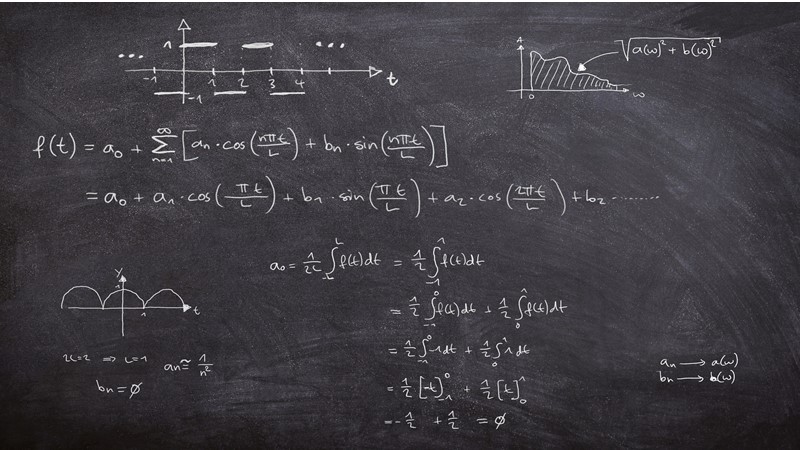 1
... ...
-1 1 2 3 4 t
-1
A √a(ω)² + b(ω)²
0 ω
f(t) = a₀ + ∞∑n=1 [aₙ · cos(nπt/L) + bₙ · sin(nπt/L)]
= a₀ + a₁ · cos(πt/L) + b₁ · sin(πt/L) + a₂ · cos(2πt/L) + b₂ ········
a₀ = 1/2L ∫₋L^L f(t)dt = 1/2 ∫₋₁^1 f(t)dt
= 1/2 ∫₋₁^0 f(t)dt + 1/2 ∫₀^1 f(t)dt
= 1/2 ∫₋₁^0 -1dt + 1/2 ∫₀^1 1dt
= 1/2 [-t]₋₁^0 + 1/2 [t]₀^1
= -1/2 + 1/2 = ∅
y
1
1 t
2L=2 ⇒ L=1 aₙ ≅ 1/n²
bₙ = ∅
aₙ → a(ω)
bₙ → b(ω)